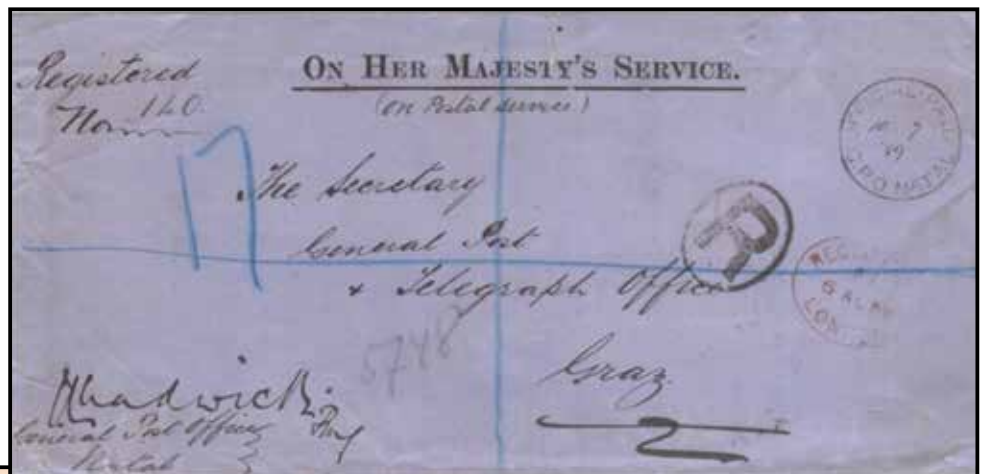 Registered
No. 140.
ON HER MAJESTY'S SERVICE.
(on Postal service)
OFFICIAL PAID
10 7
G.P.O. NATAL
The Secretary
General Post
& Telegraph Office
Graz
R
5748
Chadwick
General Post Office
Natal